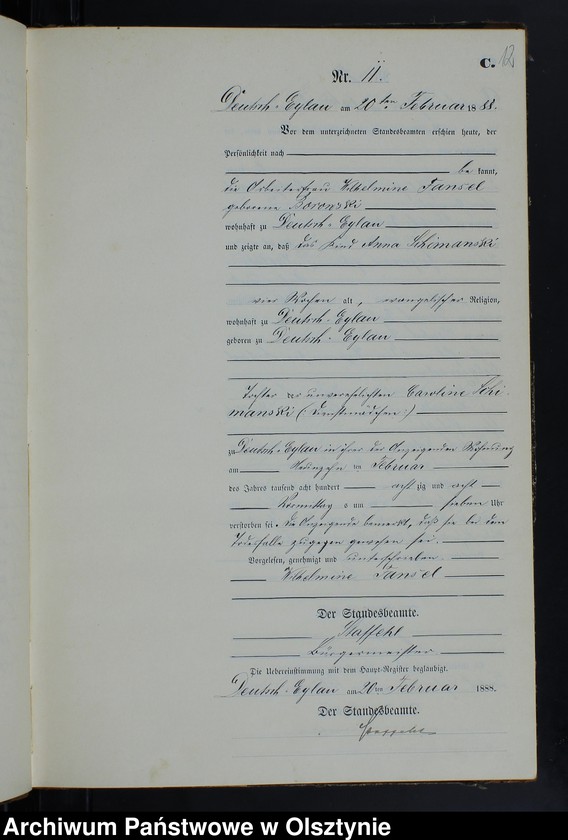 C. 12
Nr. 11.
Deutsch-Eylau am 20ten Februar 1888.
Vor dem unterzeichneten Standesbeamten erschien heute, der
Persönlichkeit nach
be kannt,
die Arbeiterfrau Wilhelmine Tansel
geborene Borowski
wohnhaft zu Deutsch-Eylau
und zeigte an, daß das Kind Anna Schimanski
vier Wochen alt, evangelischer Religion,
wohnhaft zu Deutsch-Eylau
geboren zu Deutsch-Eylau
Tochter der unverehelichten Caroline Schi-
manski (Dienstmädchen)
zu Deutsch-Eylau in ihrer der Anzeigenden Wohnung
am Neunzehn ten Februar
des Jahres tausend acht hundert acht zig und acht
Vormittag s um sieben Uhr
verstorben sei. Die Anzeigende bemerkt, daß sie bei dem
Todesfalle zugegen gewesen sei.
Vorgelesen, genehmigt und unterschrieben
Wilhelmine Tansel
Der Standesbeamte.
Staffehl
Bürgermeister
Die Uebereinstimmung mit dem Haupt-Register beglaubigt.
Deutsch-Eylau am 20ten Februar 1888.
Der Standesbeamte.
Staffehl
Archiwum Państwowe w Olsztynie